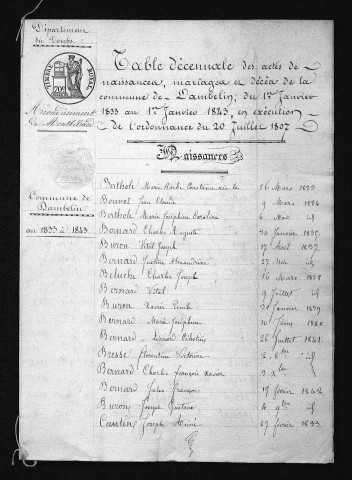 Département
du Doubs
TIMBRE ROYAL
Arrondissement
de Montbéliard
Commune de
Dambelin
an 1833 à 1843.
Table décennale des actes de
naissances, mariages et décès de la
commune de Dambelin, du 1er Janvier
1833 au 1er Janvier 1843, en exécution
de l'ordonnance du 20 Juillet 1807
Naissances
Berthole Marie née le 26 Mars 1833
Bonnot Jean Claude 9 Mars 1834
Berthole Marie Joséphine Caroline 6 Mai id
Bernard Charles Auguste 30 Janvier 1835
Buron Joseph 17 Avril 1837
Bernard Justine Alexandrine 27 Mai id
Beluche Charles Joseph 16 Mars 1838
Bernard Vital 9 Juillet id
Buron Xavier Emile 30 Janvier 1839
Bernard Marie Joséphine 10 Juin 1840
Bernard Célestin 26 Juillet 1841
Bresse Florentine Victorine 2 id
Bernard Charles François Xavier 9 id
Bernard Jules François 19 février 1842
Buron Joseph Gustave 4 9bre id
Caulin Joseph 27 février 1833